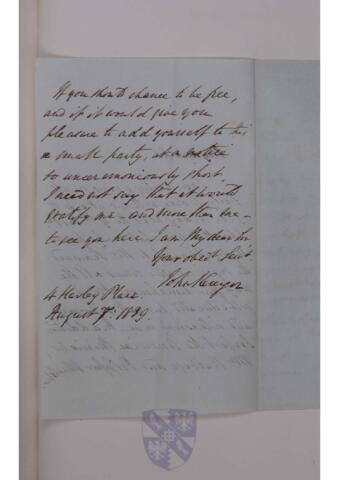 If you should chance to be free,
and if it would give you
pleasure to add yourself to this
small party, at a notice
so unceremoniously short,
I need not say that it would
gratify me - and more than me -
to see you here. I am My dear Sir
Your obedt. Servt.
John Kenyon
4 Harley Place.
August 7. 1839.